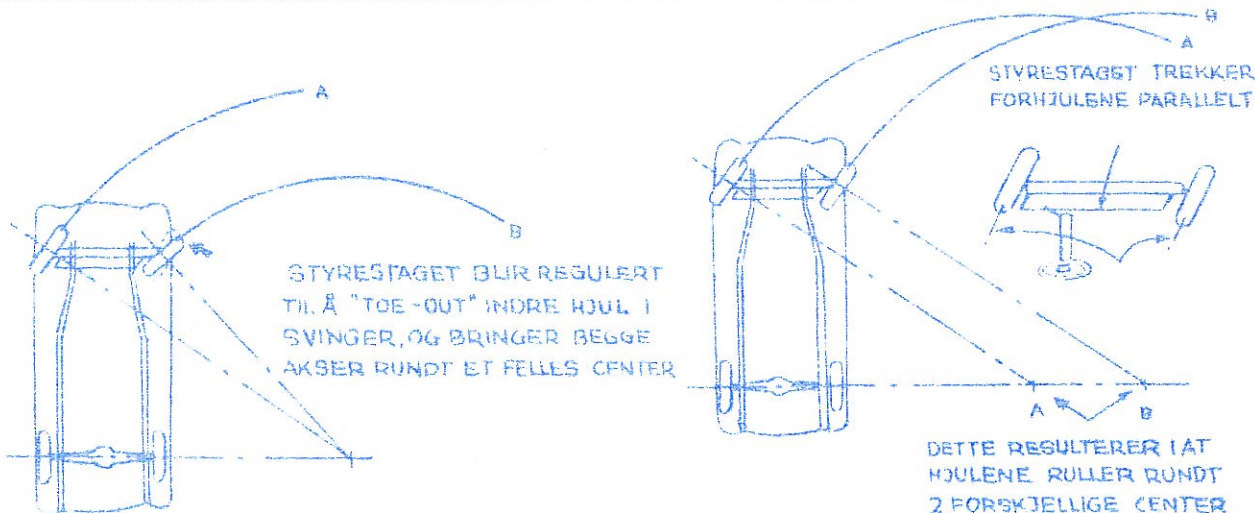 A
B
STYRESTAGET BLIR REGULERT
TIL Å "TOE-OUT" INDRE HJUL I
SVINGER, OG BRINGER BEGGE
AKSER RUNDT ET FELLES CENTER
B
A
STYRESTAGET TREKKER
FORHJULENE PARALLELT
A
B
DETTE RESULTERER I AT
HJULENE RULLER RUNDT
2 FORSKJELLIGE CENTER